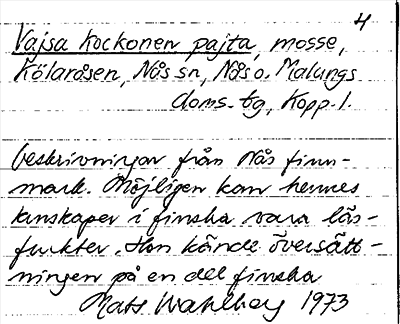 4
Vajsa Kockonen pajta, mosse,
Kölaråsen, Nås sn, Nås o. Malungs
doms. tg, Kopp. l.
beskrivningar från Nås finn-
mark. Möjligen kan hennes
kunskaper i finska vara läs-
frukter. Hon kände översätt-
ningen på en del finska
Mats Wahlberg 1973